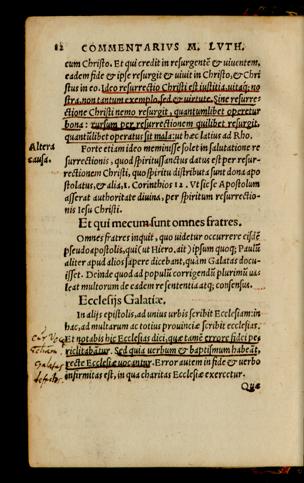 82 COMMENTARIVS M. LVTH.
cum Christo. Et qui credit in resurgentē & viuentem,
eadem fide & ipse resurgit & uiuit in Christo, & Chri
stus in eo. Ideo resurrectio Christi est iustitia, uitaq; no
stra, non tantum exemplo, sed & uirtute. Sine resurre-
ctione Christi nemo resurgit, quantumlibet operetur
bona: rursum per resurrectionem quilibet resurgit,
quantūlibet operatus sit mala: ut hæc latius ad Rho.
Altera causa.
Forte etiam ideo meminisse solet in salutatione re
surrectionis, quod spiritus sanctus datus est per resur-
rectionem Christi, quo spiritu distributa sunt dona apo
stolatus, & alia, 1. Corinthios 12. Vt sic se Apostolum
asserat authoritate diuina, per spiritum resurrectio-
nis Iesu Christi.
Et qui mecum sunt omnes fratres.
Omnes fratres inquit, quo uidetur occurrere eisdē
pseudoapostolis, qui (ut Hiero. ait) ipsum quoq; Paulū
aliter apud alios sapere dicebant, quàm Galatas docu-
isset. Deinde quod ad populū corrigendū plurimū ua-
leat multorum de eadem re sententia atq; consensus.
Ecclesijs Galatiæ.
In alijs epistolis, ad unius urbis scribit Ecclesiam: in
hac, ad multarum ac totius prouinciæ scribit ecclesias.
Et notabis hic Ecclesias dici, quæ tamē errore fidei pe
riclitabātur. Sed quia uerbum & baptismum habeāt,
recte Ecclesiæ uocantur. Error autem in fide & uerbo
infirmitas est, in qua charitas Ecclesiæ exercetur.
Quæ